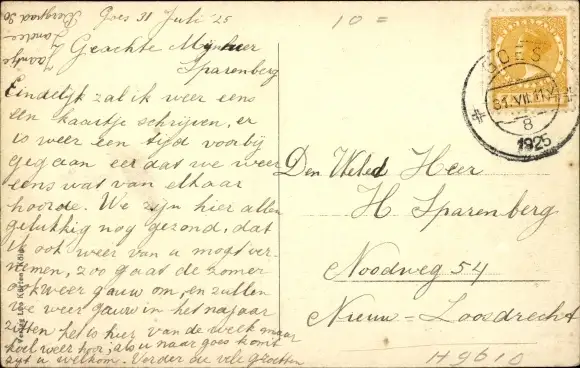 Goes 31 Juli '25
Geachte Mijnheer
Sparenberg
Eindelijk zal ik weer eens
een kaartje schrijven, er
is weer een tijd voorbij
gegaan eer dat we weer
eens wat van elkaar
hoorde. We zijn hier allen
gelukkig nog gezond, dat
ik ook weer van u mogt ver-
nemen, zoo gaat de zomer
ook weer gauw om, en zullen
we weer gauw in het najaar
zitten het is hier van de week maar
koel weer hoor, als u naar goes komt
zijt u welkom. Verder de vele groetten
Jaantje
Zandee
10 =
NEDERLAND
GOES
31.VII.11.V
8
1925
Den Weled Heer
H Sparenberg
Noodweg 54
Nieuw-Loosdrecht
H9610
Verlag Leo Körten, Köln